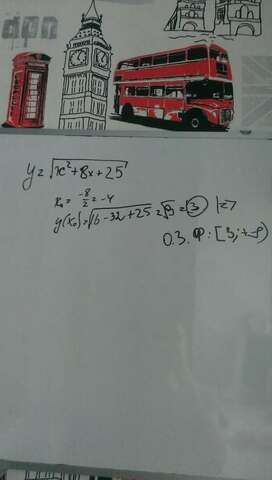 y = √x²+8x+25
x₀ = -8/2 = -4
y(x₀) = √16-32+25 = √9 = 3 |=>
О.З.Ф: [3; +∞)